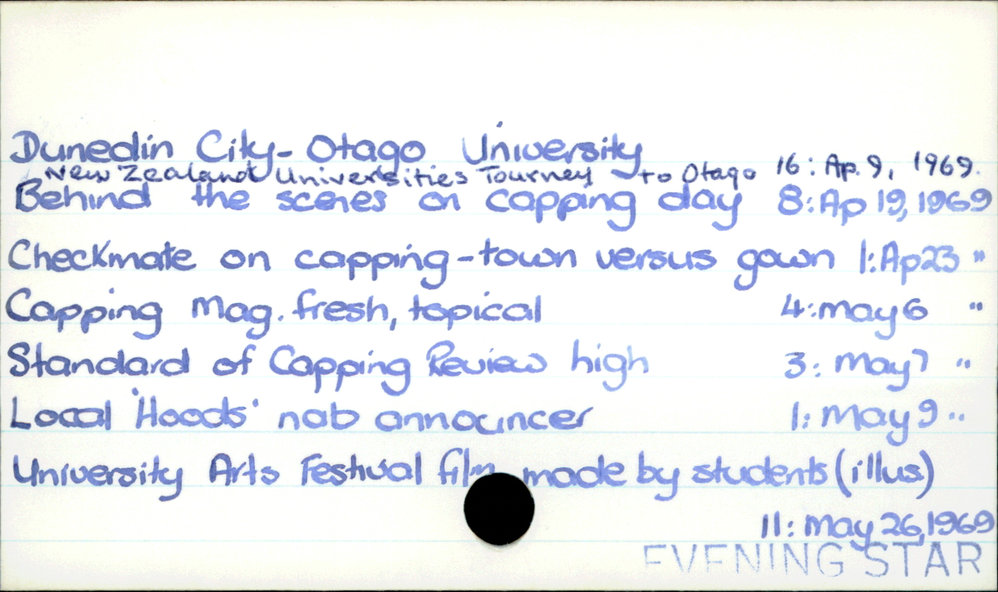 Dunedin City - Otago University
New Zealand Universities Tourney to Otago 16: Ap. 9, 1969.
Behind the scenes on capping day 8: Ap 19, 1969
Checkmate on capping - town versus gown 1: Ap 23 "
Capping Mag. fresh, topical 4: May 6 "
Standard of Capping Review high 3: May 7 "
Local 'Hoods' nab announcer 1: May 9 "
University Arts Festival film made by students (illus)
11: May 26, 1969
EVENING STAR